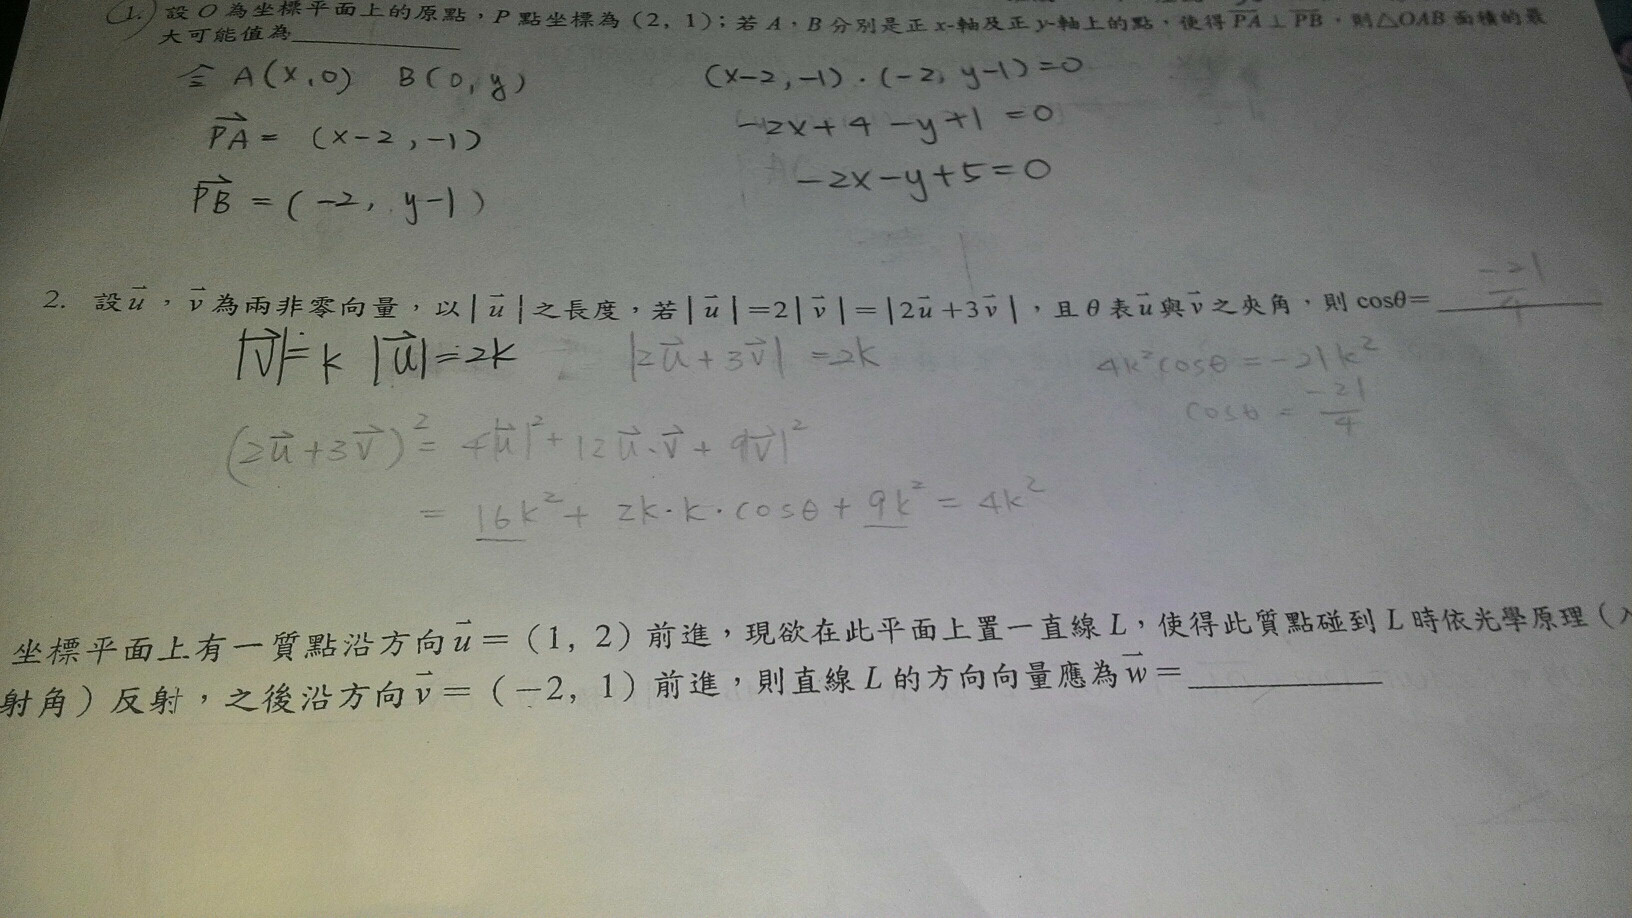 1. 設 O 為坐標平面上的原點，P 點坐標為（2, 1）；若 A，B 分別是正 x-軸及正 y-軸上的點，使得 $\overline{PA}$⊥$\overline{PB}$，則△OAB 面積的最
大可能值為
令 A(x,0) B(0,y)
$\overrightarrow{PA}$ = (x-2,-1)
$\overrightarrow{PB}$ = (-2, y-1)
(x-2,-1)·(-2, y-1)=0
-2x+4-y+1=0
-2x-y+5=0
2. 設$\vec{u}$，$\vec{v}$為兩非零向量，以|$\vec{u}$|之長度，若|$\vec{u}$|=2|$\vec{v}$|=|2$\vec{u}$+3$\vec{v}$|，且θ表$\vec{u}$與$\vec{v}$之夾角，則 cosθ= $\frac{-21}{4}$
|$\vec{v}$|=k |$\vec{u}$|=2k |2$\vec{u}$+3$\vec{v}$|=2k
(2$\vec{u}$+3$\vec{v}$)² = 4|$\vec{u}$|²+12$\vec{u}$·$\vec{v}$+9$\vec{v}$|²
= 16k²+2k·k·cosθ+9k²=4k²
4k²cosθ=-21k²
cosθ = $\frac{-21}{4}$
坐標平面上有一質點沿方向$\vec{u}$=（1, 2）前進，現欲在此平面上置一直線 L，使得此質點碰到 L 時依光學原理（入
射角）反射，之後沿方向$\vec{v}$=（-2, 1）前進，則直線 L 的方向向量應為$\vec{w}$=